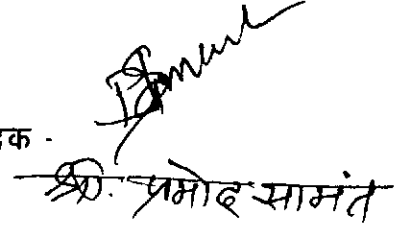 दक -
श्री. प्रमोद सामंत